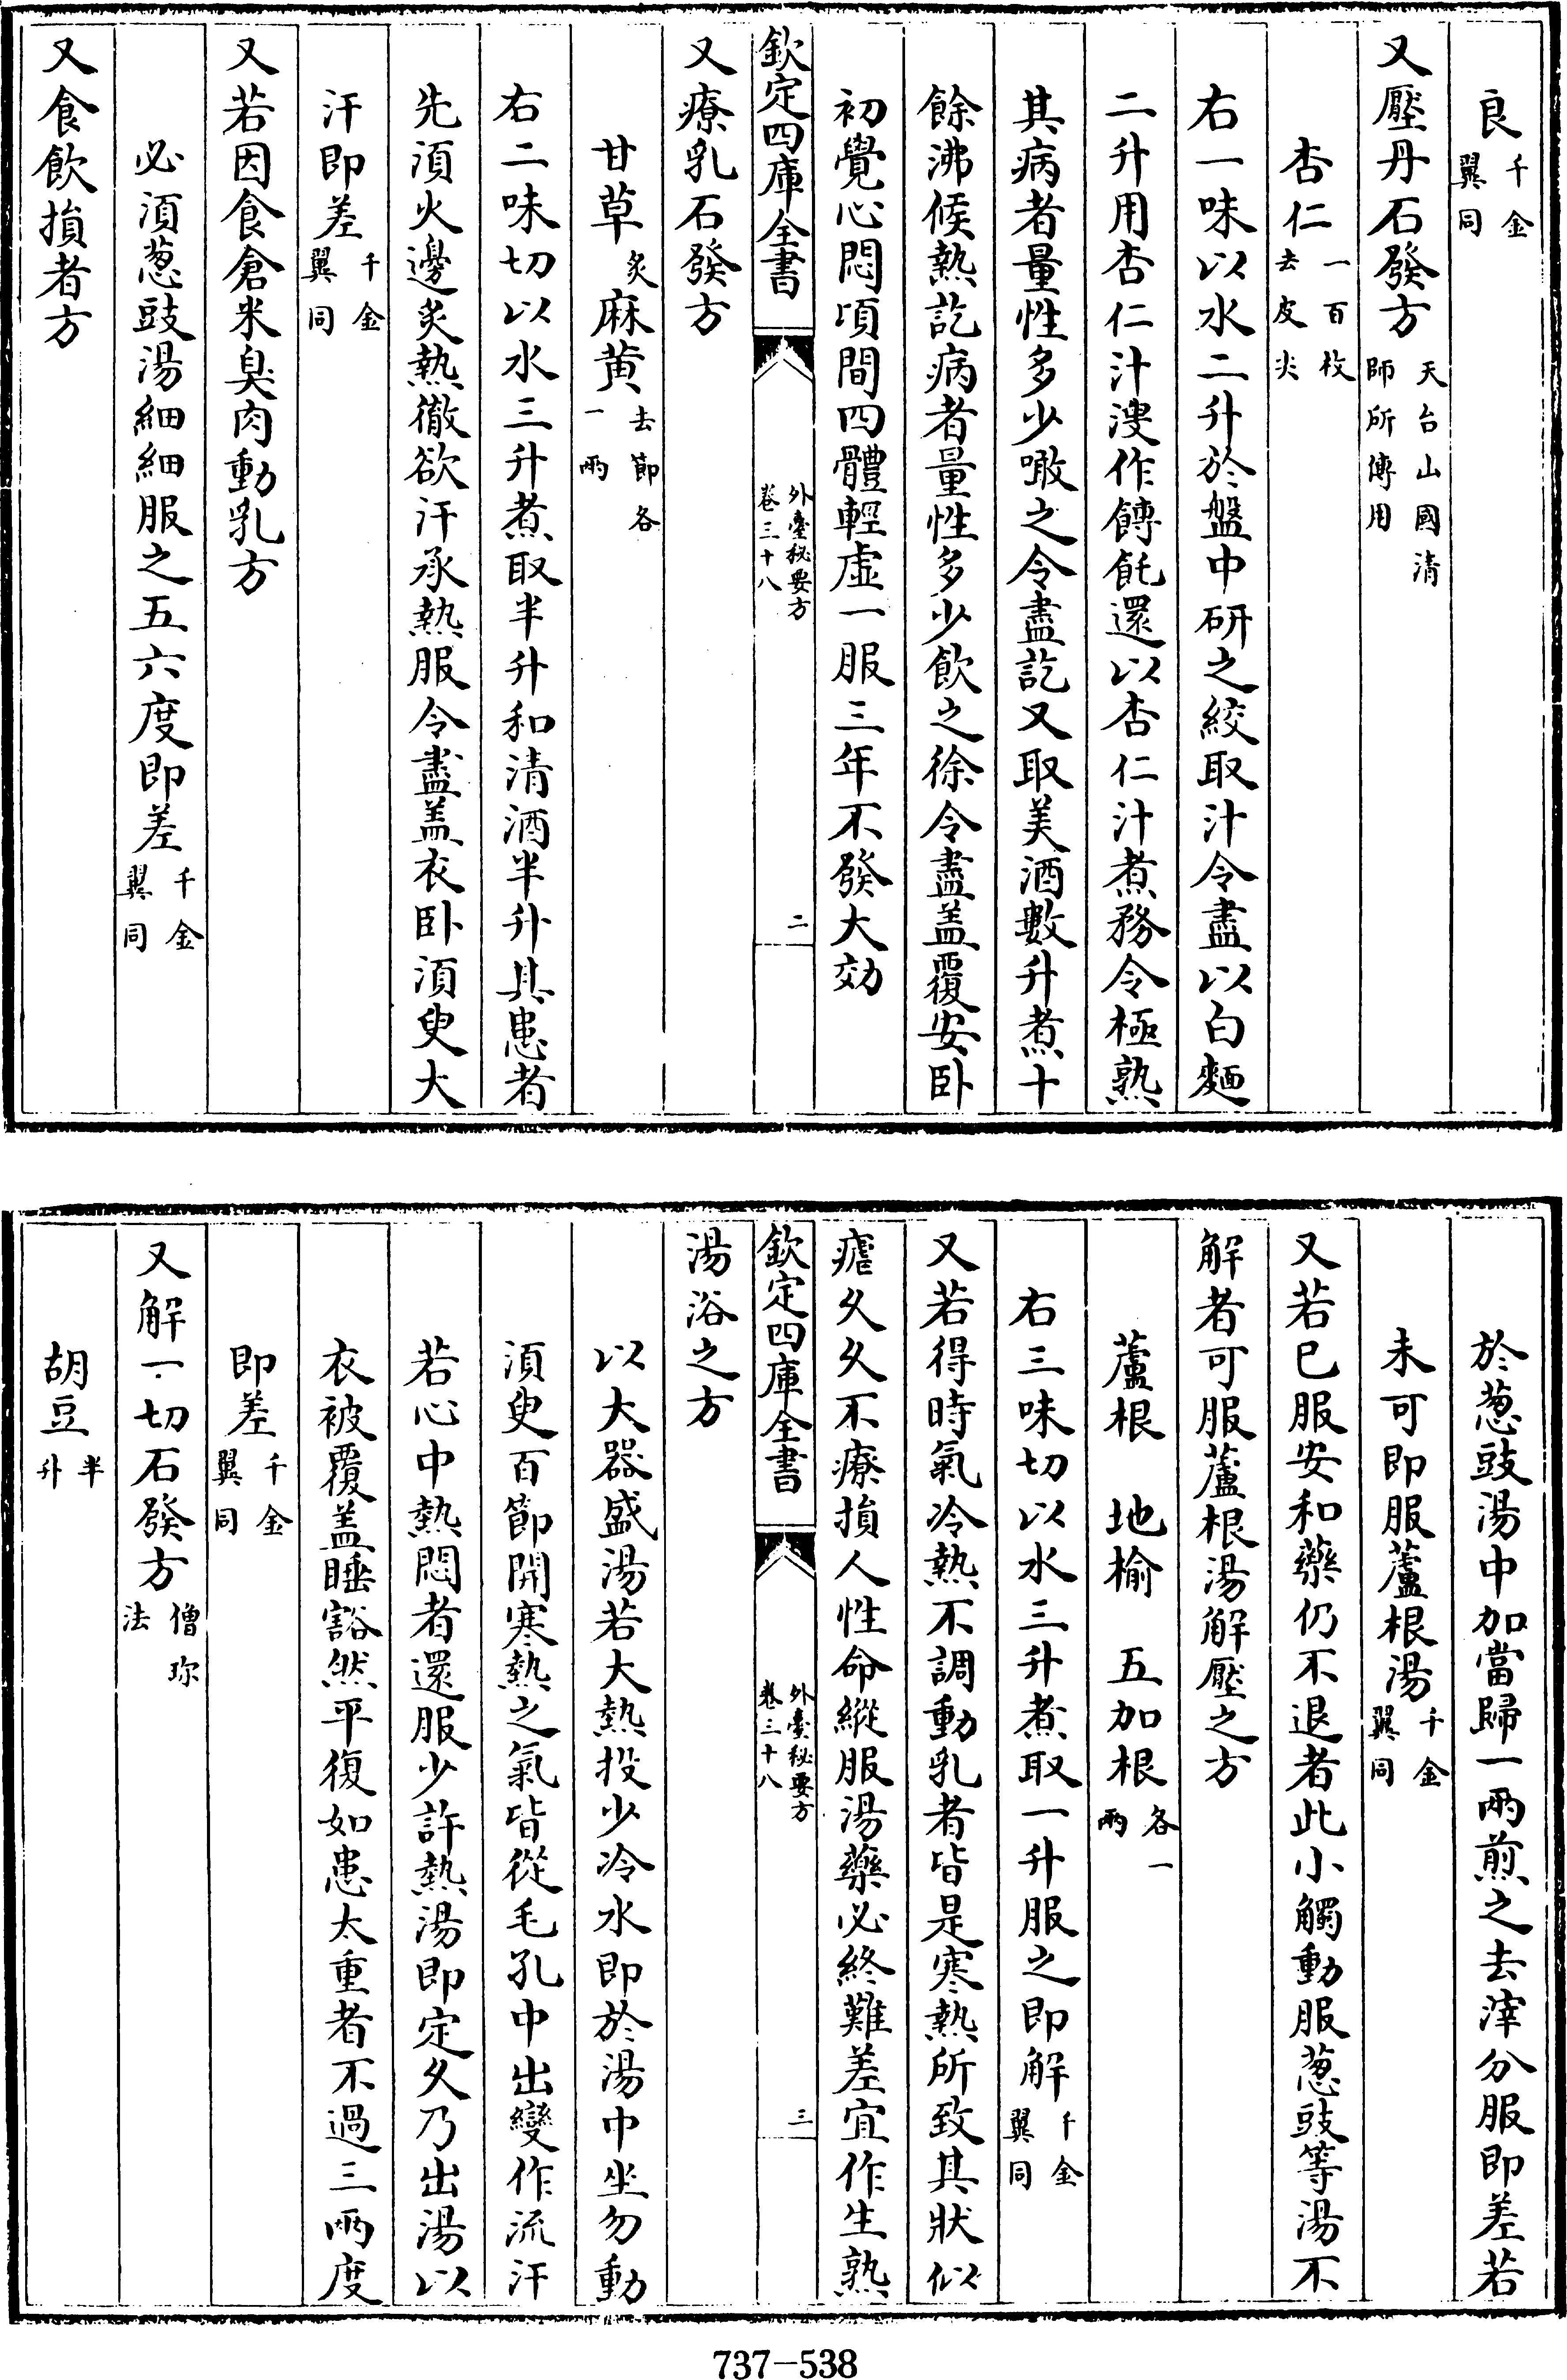 良千金翼同
又壓丹石發方天台山國清師所傳用
杏仁一百枚去皮尖
右一味以水二升於盤中研之絞取汁令盡以白麵
二升用杏仁汁溲作餺飥還以杏仁汁煮務令極熟
其病者量性多少噉之令盡訖又取美酒數升煮十
餘沸候熱訖病者量性多少飲之徐令盡蓋覆安卧
初覺心悶頃間四體輕虛一服三年不發大効
欽定四庫全書
外臺秘要方
卷三十八
二
又療乳石發方
甘草炙麻黄去節各一兩
右二味切以水三升煮取半升和清酒半升其患者
先須火邊炙熱徹欲汗承熱服令盡盖衣卧須臾大
汗即差千金翼同
又若因食倉米臭肉動乳方
必須葱豉湯細細服之五六度即差千金翼同
又食飲損者方
於葱豉湯中加當歸一兩煎之去滓分服即差若
未可即服蘆根湯千金翼同
又若已服安和藥仍不退者此小觸動服葱豉等湯不
解者可服蘆根湯解壓之方
蘆根 地榆 五加根各一兩
右三味切以水三升煮取一升服之即解千金翼同
又若得時氣冷熱不調動乳者皆是寒熱所致其狀似
瘧久久不療損人性命縱服湯藥必終難差宜作生熟
欽定四庫全書
外臺秘要方
卷三十八
三
湯浴之方
以大器盛湯若大熱投少冷水即於湯中坐勿動
須臾百節開寒熱之氣皆從毛孔中出變作流汗
若心中熱悶者還服少許熱湯即定久乃出湯以
衣被覆盖睡豁然平復如患太重者不過三兩度
即差千金翼同
又解一切石發方僧珎法
胡豆半升
737-538